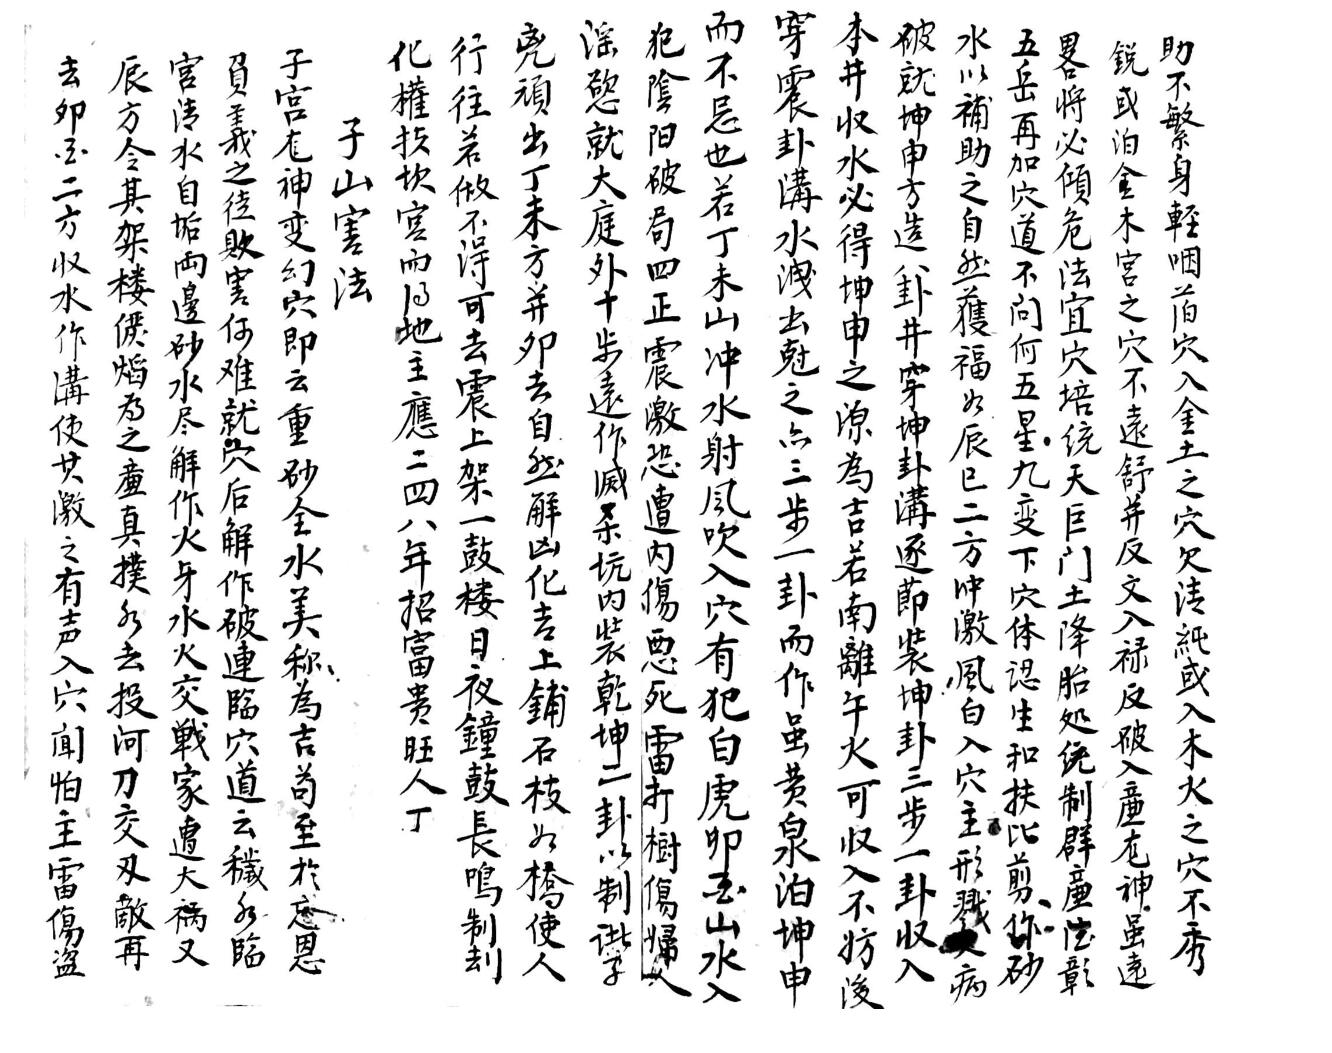 助不繁身輕咽萡穴入金土之穴欠清純或入木火之穴不秀
銳或泊金木宮之穴不遠舒并反文入禄反破入亷尨神虽遠
畧将必傾危法宜穴培统天巨门土降胎処统制群亷法彰
五岳再加穴道不问何五星九变下穴体认生和扶比剪你砂
水以補助之自然獲福如辰巳二方冲激風白入穴主形戮病
破就坤申方造八卦井穿坤卦溝逐節裝坤卦三步一卦收入
本井收水必得坤申之源為吉若南離午火可收入不妨後
穿震卦溝水洩出尅之亦三步一卦而作虽黄泉泊坤申
而不忌也若丁未山冲水射風吹入穴有犯白虎卯酉山水入
犯陰阳破局四正震激恐遭内傷悪死雷打樹傷婦人
滛慾就大庭外十步遠作滅杀坑内裝乾坤二卦以制
兇頑出丁未方并卯去自然解凶化吉上鋪石枝如橋使人
行往若做不淂可去震上架一鼓楼日夜鐘鼓長鳴制刦
化權扶坎宮而得地主應二四八年招富贵旺人丁
子山害法
子宮尨神变幻穴即云重砂全水美称為吉苟至於忘恩
負義之徒敗害何难就穴后解作破連臨穴道云穢如臨
宮清水自垢両邊砂水尽解作火牙水火交戰家遭大禍又
辰方令其架楼俱焰为之童真撲如去投河刀交刄敵再
去卯酉二方収水作溝使其激之有声入穴闻怕主雷傷盗